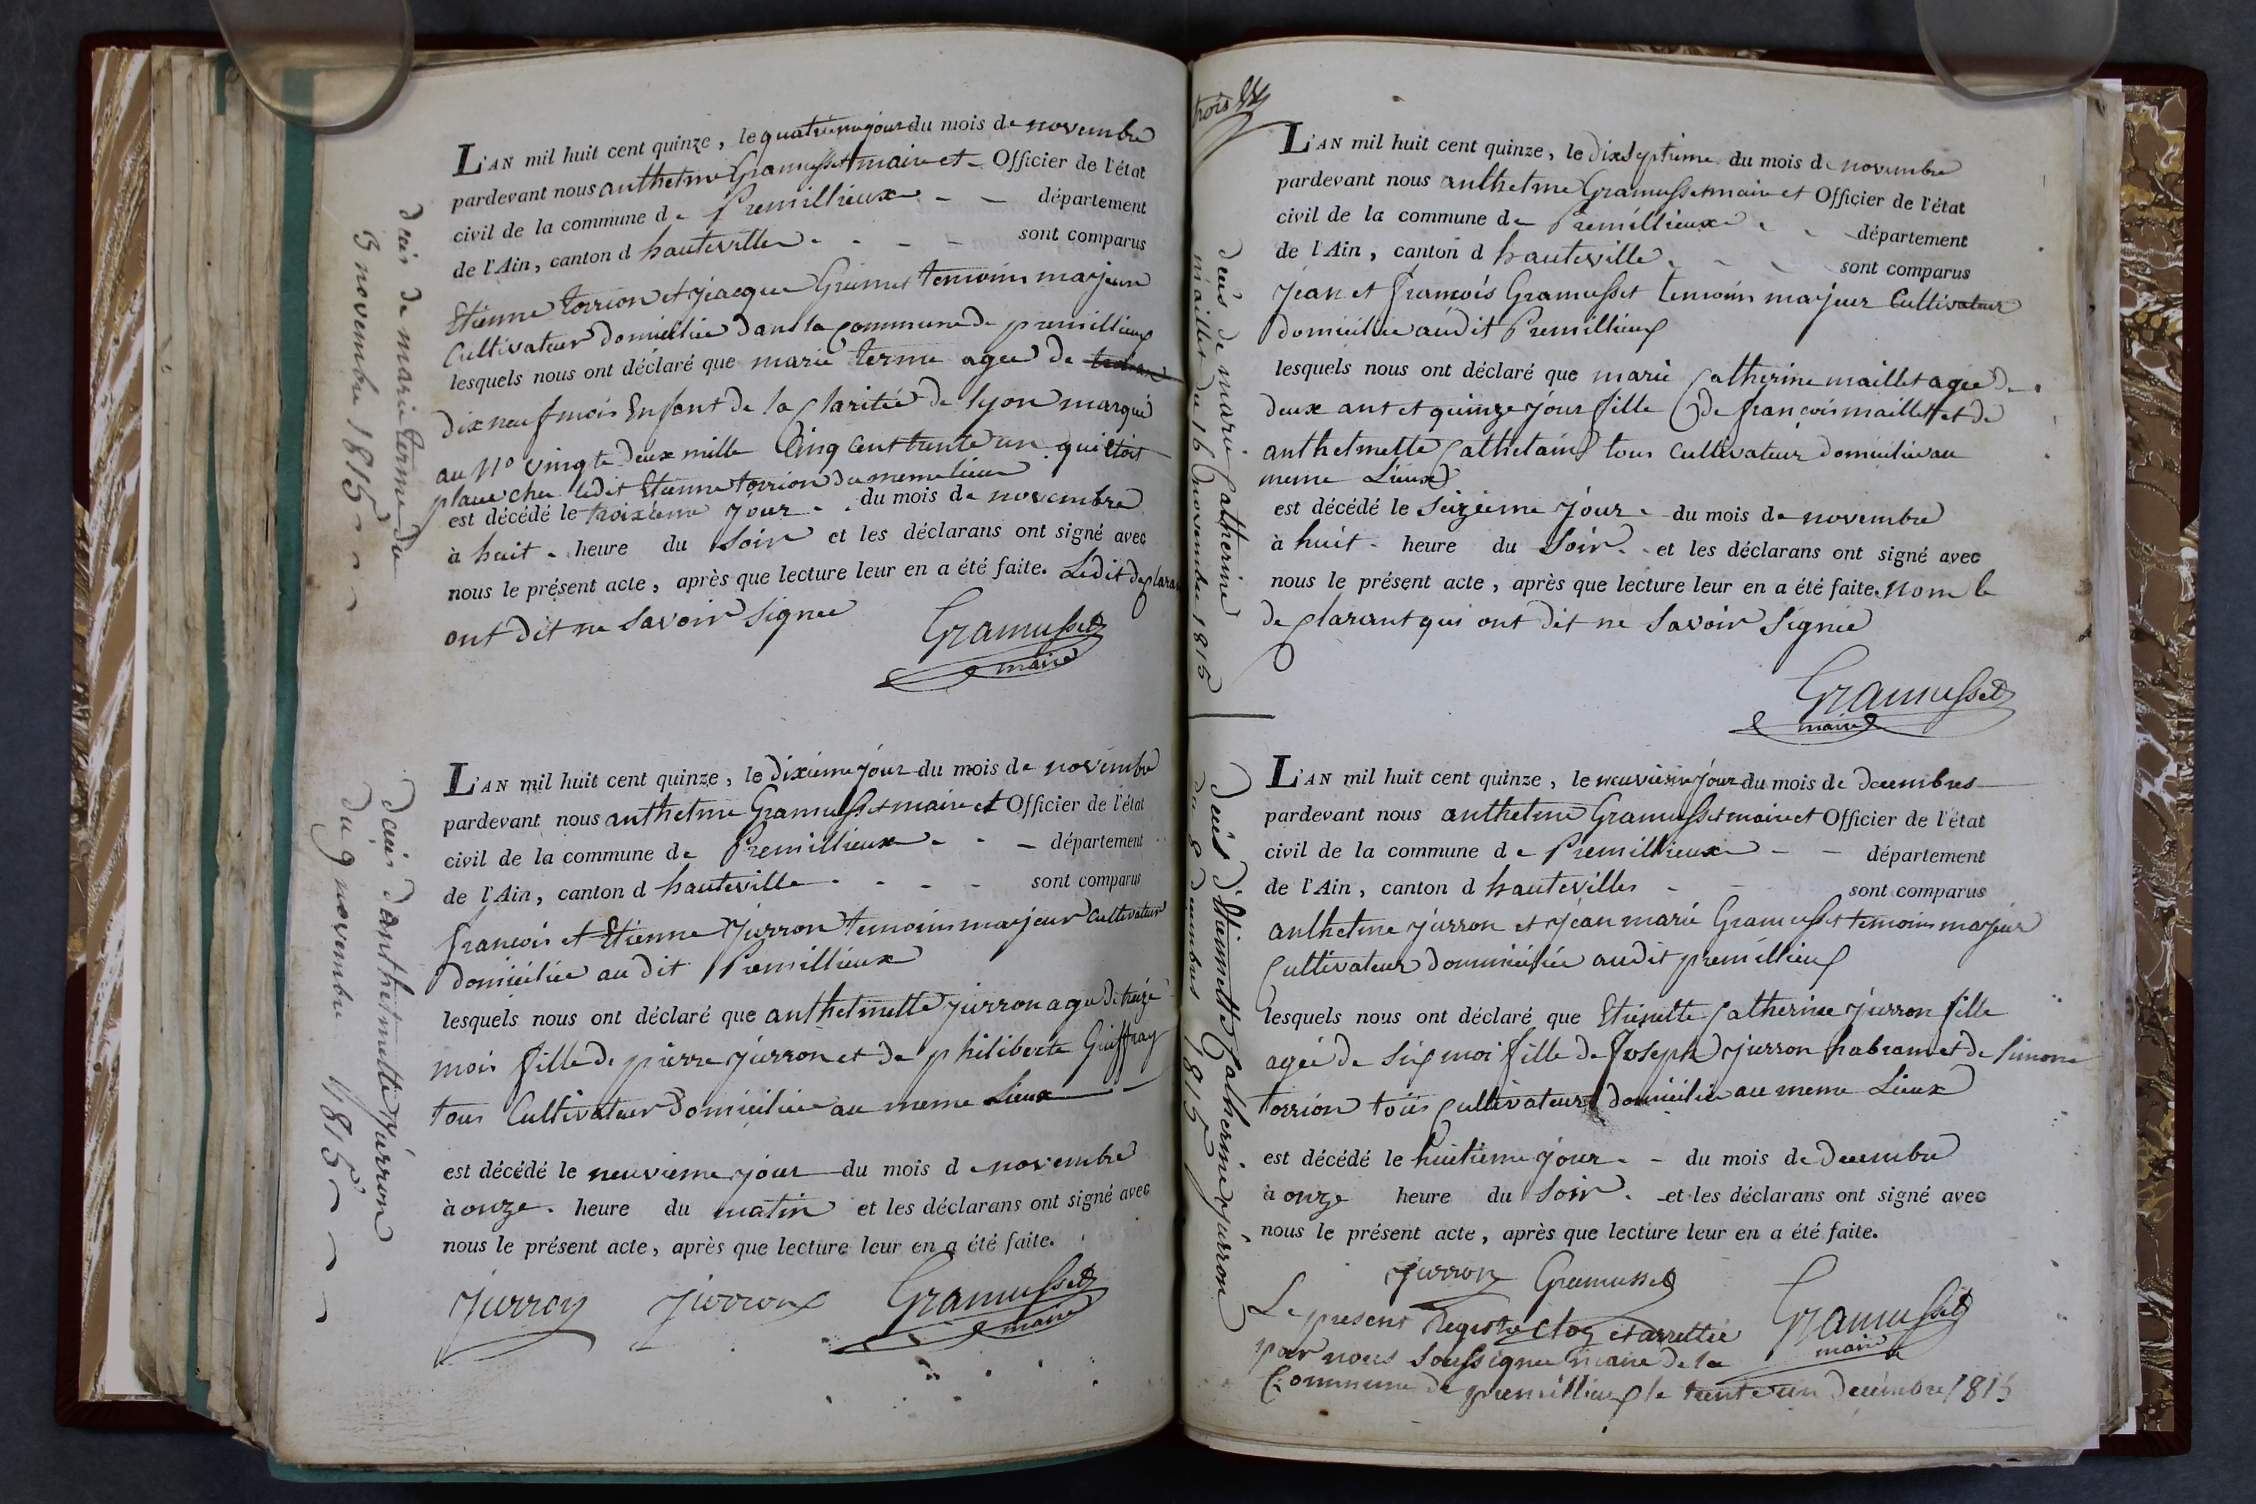 décès de marie terme du
3 novembre 1815
L'AN mil huit cent quinze, le quatrieme jour du mois de novembre
pardevant nous anthelme Gramusset maire et Officier de l'état
civil de la commune de Premillieux département
de l'Ain, canton d hauteville sont comparus
Etienne torrion et jacque Grimet temoins majeur
Cultivateur domicilié dans la Commune de premillieux
lesquels nous ont déclaré que marie terme agée de
dix neuf mois Enfant de la Charitée de lyon marqué
au N° vingte deux mille Cinq cent trente un qui etoit
place chez ledit Etienne torrion du meme lieux
est décédé le troixieme jour du mois de novembre
à huit heure du Soir et les déclarans ont signé avec
nous le présent acte, après que lecture leur en a été faite. Ledit declarant
ont dit ne Savoir Signee
Gramusset
maire
décès d'anthelmette jurron
du 9 novembre 1815
L'AN mil huit cent quinze, le dixieme jour du mois de novembre
pardevant nous anthelme Gramusset maire et Officier de l'état
civil de la commune de Premillieux département
de l'Ain, canton d hauteville sont comparus
francois et Etienne jurron temoins majeur cultivateur
domicilié au dit Premillieux
lesquels nous ont déclaré que anthelmette jurron agee de treize
mois fille de pierre jurron et de philiberte Guiffray
tous Cultivateur domicilié au meme Lieux
est décédé le neuvieme jour du mois de novembre
à onze heure du matin et les déclarans ont signé avec
nous le présent acte, après que lecture leur en a été faite.
jurron jurron Gramusset
maire
trois
décès de marie Catherine
maillet du 16 novembre 1815
L'AN mil huit cent quinze, le dix septieme du mois de novembre
pardevant nous anthelme Gramusset maire et Officier de l'état
civil de la commune de Premillieux département
de l'Ain, canton d hauteville sont comparus
jean et francois Gramusset temoins majeur Cultivateur
domicilié audit Premillieux
lesquels nous ont déclaré que marie Catherine maillet agée de
deux ant et quinze jour fille de francois maillet et de
anthelmette tous cultivateur domicilié au
meme Lieux
est décédé le Seizieme jour du mois de novembre
à huit heure du Soir et les déclarans ont signé avec
nous le présent acte, après que lecture leur en a été faite. nom le
declarant qui ont dit ne Savoir Signée
Gramusset
maire
décès d'Etiennette Catherine jurron
du 8 decembres 1815
L'AN mil huit cent quinze, le neuvieme jour du mois de decembres
pardevant nous anthelme Gramusset maire et Officier de l'état
civil de la commune de Premillieux département
de l'Ain, canton d hauteville sont comparus
anthelme jurron et jean marie Gramusset temoins majeur
Cultivateur domicilié audit premillieux
lesquels nous ont déclaré que Etienette Catherine jurron fille
agée de Six moi fille de Joseph jurron et de Simone
torrion tous Cultivateurs domicilié au meme Lieux
est décédé le huitieme jour du mois de decembre
à onze heure du Soir et les déclarans ont signé avec
nous le présent acte, après que lecture leur en a été faite.
jurron Gramusset
Le present Registre Clos et arrettée Gramusset
par nous Soussignée maire de la maire
Commune de premillieux le trente un decembre 1815